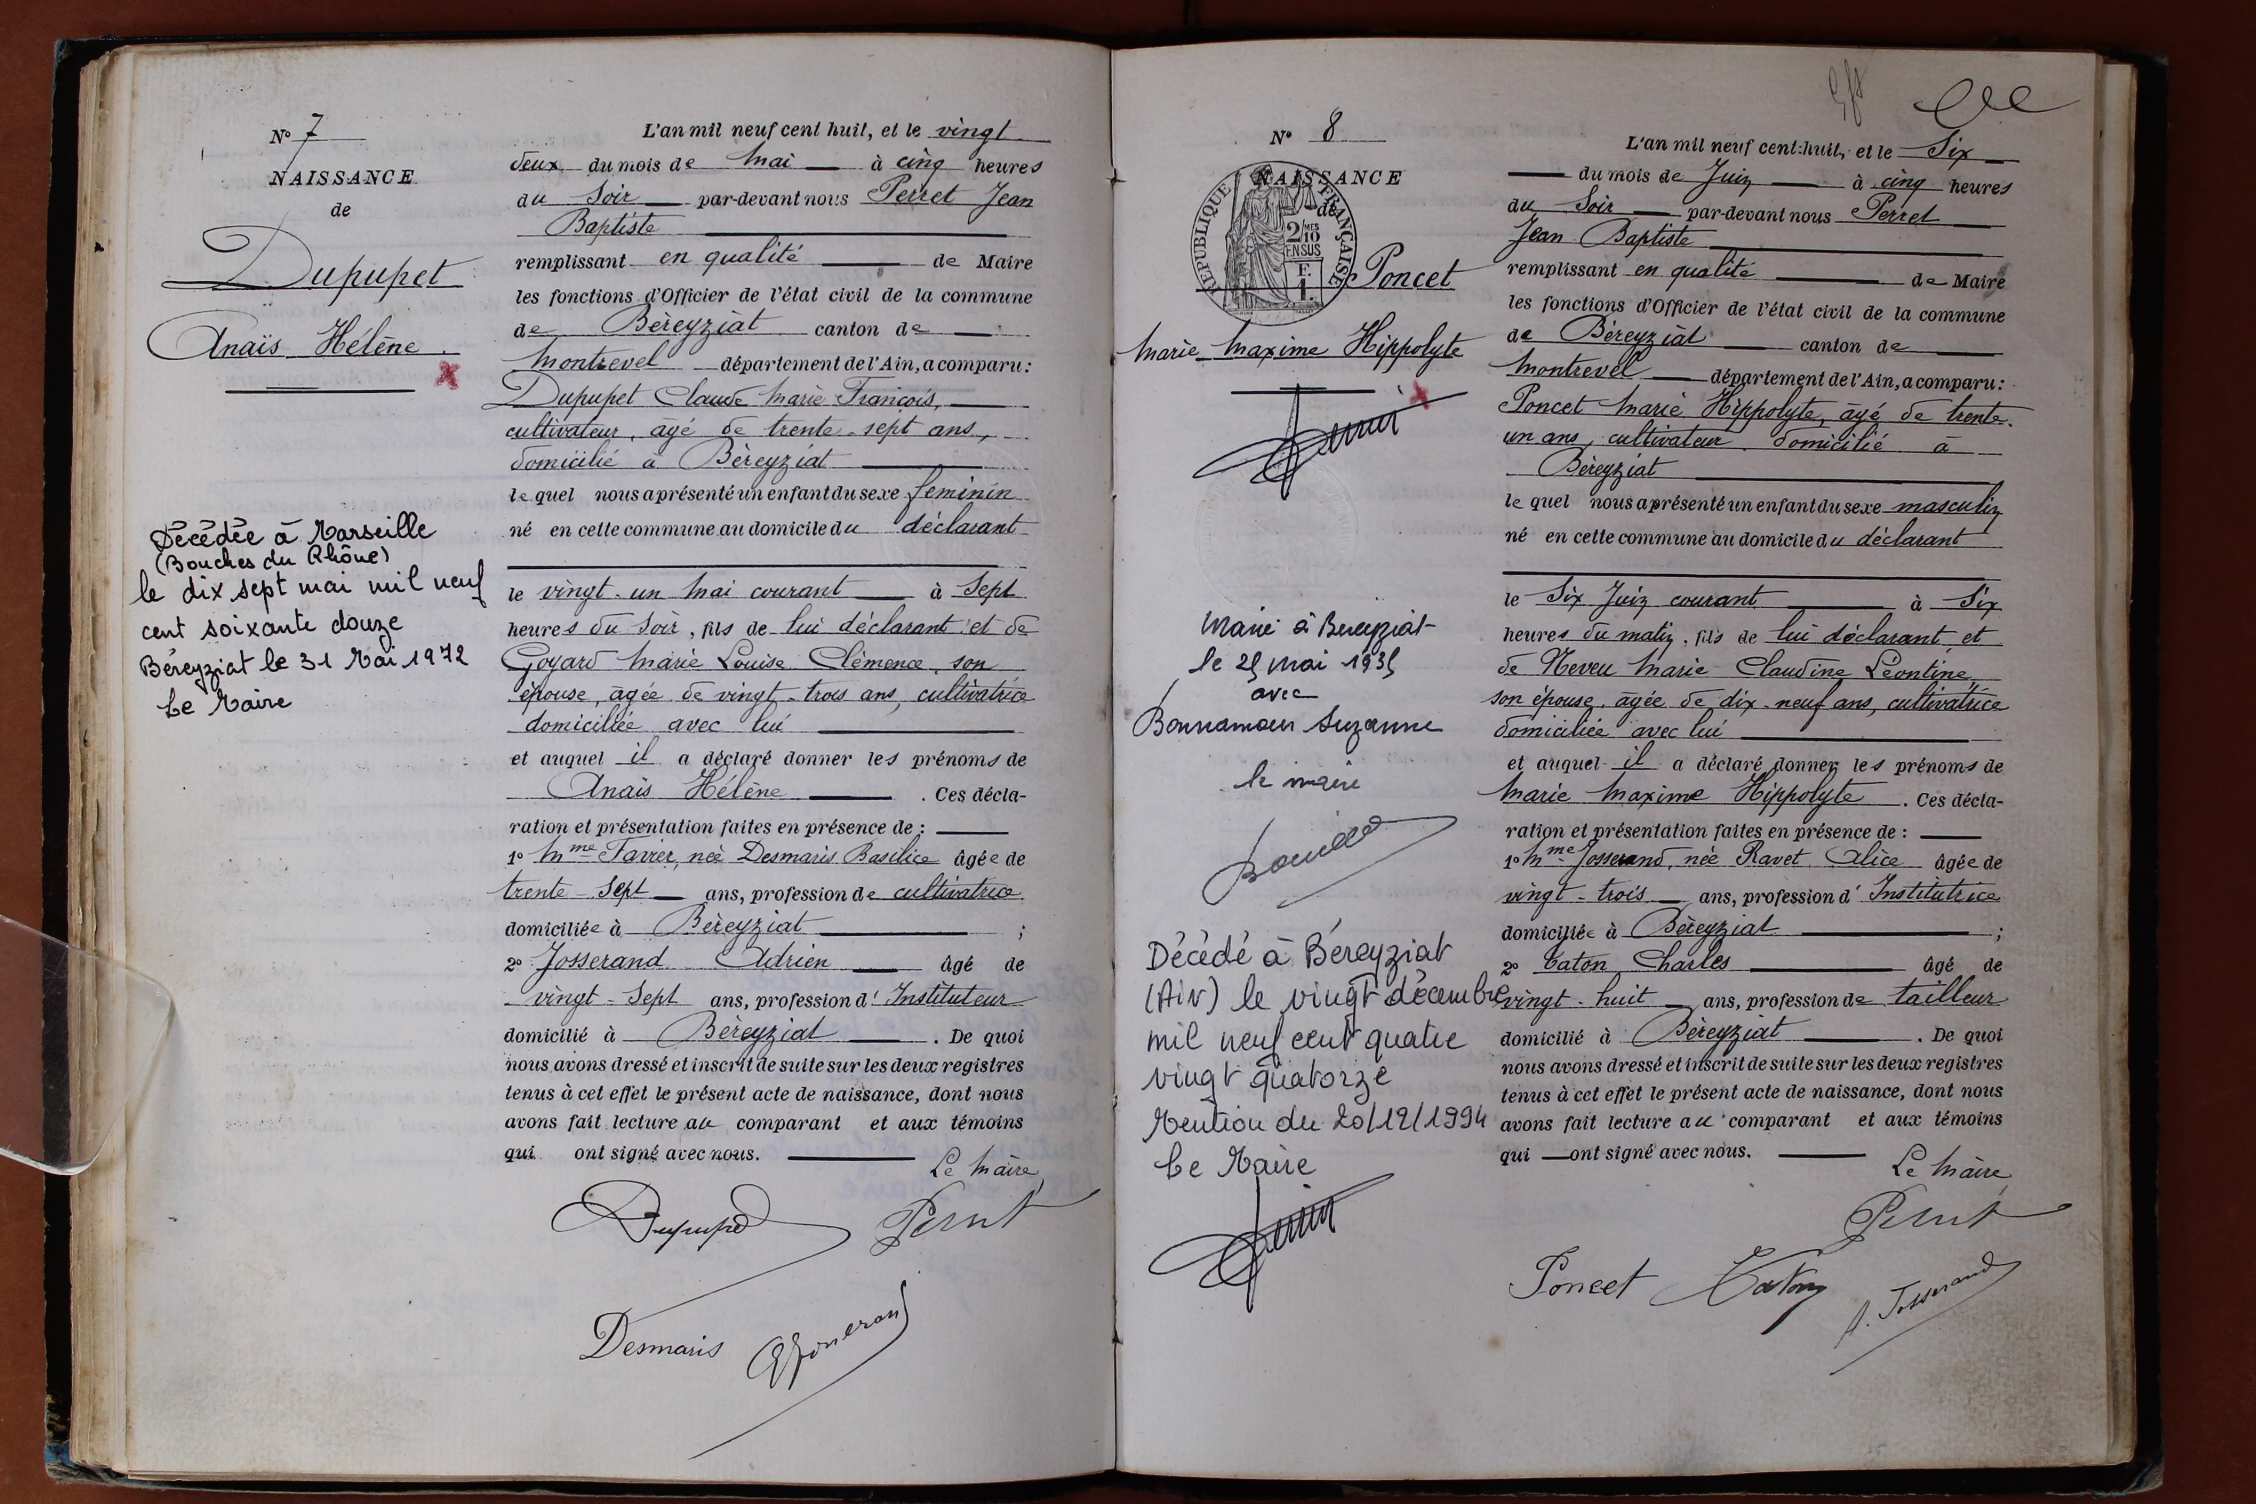 N° 7
NAISSANCE
de
Dupupet
Anaïs Hélène
Décédée à Marseille
(Bouches du Rhône)
le dix sept mai mil neuf
cent soixante douze
Béreyziat le 31 Mai 1972
Le Maire
L'an mil neuf cent huit, et le vingt
deux du mois de Mai à cinq heures
du Soir par-devant nous Perret Jean
Baptiste
remplissant en qualité de Maire
les fonctions d'Officier de l'état civil de la commune
de Bèreyziat canton de
Montrevel département de l'Ain, a comparu:
Dupupet Claude Marie François,
cultivateur, âgé de trente-sept ans,
domicilié à Bèreyziat
lequel nous a présenté un enfant du sexe feminin
né en cette commune au domicile du déclarant
le vingt-un Mai courant à Sept
heures du Soir, fils de lui déclarant et de
Goyard Marie Louise Clémence, son
épouse, âgée de vingt-trois ans, cultivatrice
domiciliée avec lui
et auquel il a déclaré donner les prénoms de
Anaïs Hélène . Ces décla-
ration et présentation faites en présence de :
1° Mme Favier, née Desmaris Basilice âgée de
trente-sept ans, profession de cultivatrice
domiciliée à Bèreyziat ;
2° Josserand Adrien âgé de
vingt-Sept ans, profession d'Instituteur
domicilié à Bèreyziat . De quoi
nous avons dressé et inscrit de suite sur les deux registres
tenus à cet effet le présent acte de naissance, dont nous
avons fait lecture au comparant et aux témoins
qui ont signé avec nous.
Le Maire,
Dupupet Perret
Desmaris A Josserand
N° 8
NAISSANCE
de
REPUBLIQUE FRANÇAISE
2/10 MES
EN SUS
F.
1.
Poncet
Marie Maxime Hippolyte
Marié à Bereyziat
avec
Bonnamour Suzanne
le maire
Décédé à Béreyziat
(Ain) le vingt décembre
mil neuf cent quatre
vingt quatorze
Mention du 20/12/1994
Le Maire
L'an mil neuf cent-huit, et le Six
du mois de Juin à cinq heures
du Soir par-devant nous Perret
Jean Baptiste
remplissant en qualité de Maire
les fonctions d'Officier de l'état civil de la commune
de Bèreyziat canton de
Montrevel département de l'Ain, a comparu:
Poncet Marie Hippolyte, âgé de trente-
un ans, cultivateur domicilié à
Bèreyziat
lequel nous a présenté un enfant du sexe masculin
né en cette commune au domicile du déclarant
le Six Juin courant à Six
heures du matin, fils de lui déclarant, et
de Neveu Marie Claudine Léontine,
son épouse, âgée de dix-neuf ans, cultivatrice
domiciliée avec lui
et auquel il a déclaré donner les prénoms de
Marie Maxime Hippolyte . Ces décla-
ration et présentation faites en présence de :
1° Mme Josserand, née Ravet Alice âgée de
vingt-trois ans, profession d'Institutrice
domiciliée à Bèreyziat ;
2° Caton Charles âgé de
vingt-huit ans, profession de tailleur
domicilié à Bèreyziat . De quoi
nous avons dressé et inscrit de suite sur les deux registres
tenus à cet effet le présent acte de naissance, dont nous
avons fait lecture au comparant et aux témoins
qui ont signé avec nous.
Le Maire,
Perret
Poncet Caton A. Josserand